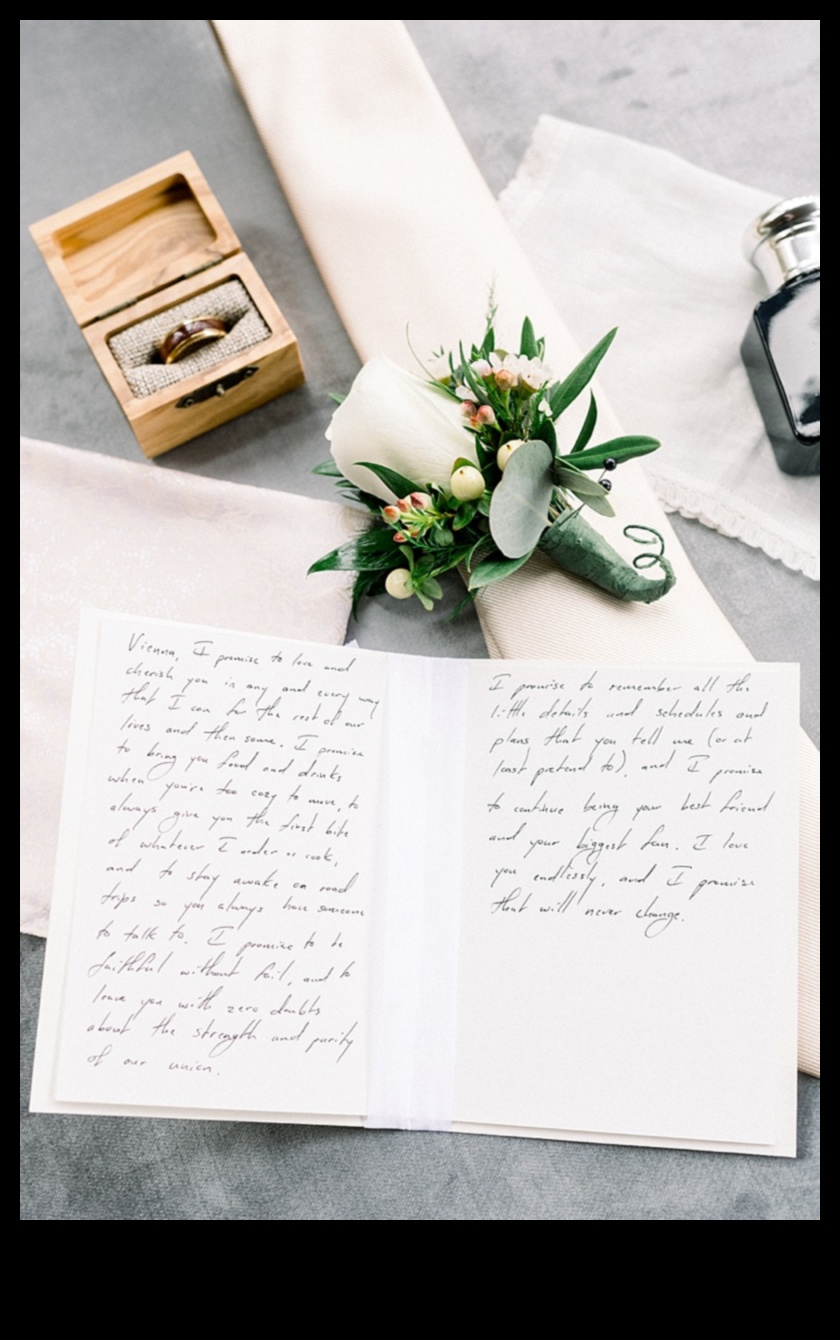 Vienna, I promise to love and
cherish you in any and every way
that I can for the rest of our
lives and then some. I promise
to bring you food and drinks
when you're too cozy to move, to
always give you the first bite
of whatever I order or cook,
and to stay awake on road
trips so you always have someone
to talk to. I promise to be
faithful without fail, and to
leave you with zero doubts
about the strength and purity
of our union.
I promise to remember all the
little details and schedules and
plans that you tell me (or at
least pretend to), and I promise
to continue being your best friend
and your biggest fan. I love
you endlessly, and I promise
that will never change.